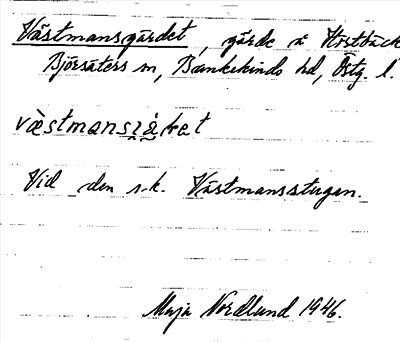 Västmansgärdet, gärde å Hostbäck
Björsäters sn, Bankekinds hd, Östg. l.
Vid den s.k. Västmansstugan.
Maja Nordlund 1946.